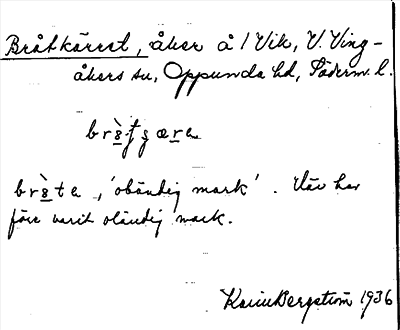 Bråtkärret, åker å 1 Vik, V. Ving-
åkers sn, Oppunda hd, Söderm. l.
brå̀tɟære
brå̀te, 'obändig mark'. Här har
förr varit oländig mark.
Karin Bergström 1936